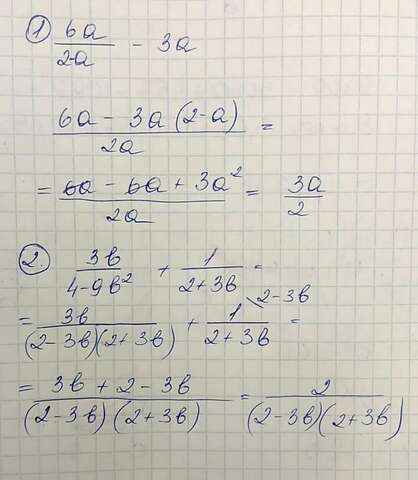 ① 6a/(2-a) - 3a
(6a - 3a(2-a))/2a =
= (6a - 6a + 3a²)/2a = 3a/2
②. 3b/(4-9b²) + 1/(2+3b) =
= 3b/((2-3b)(2+3b)) + 1/(2+3b) \2-3b =
= (3b + 2 - 3b)/((2-3b)(2+3b)) = 2/((2-3b)(2+3b))